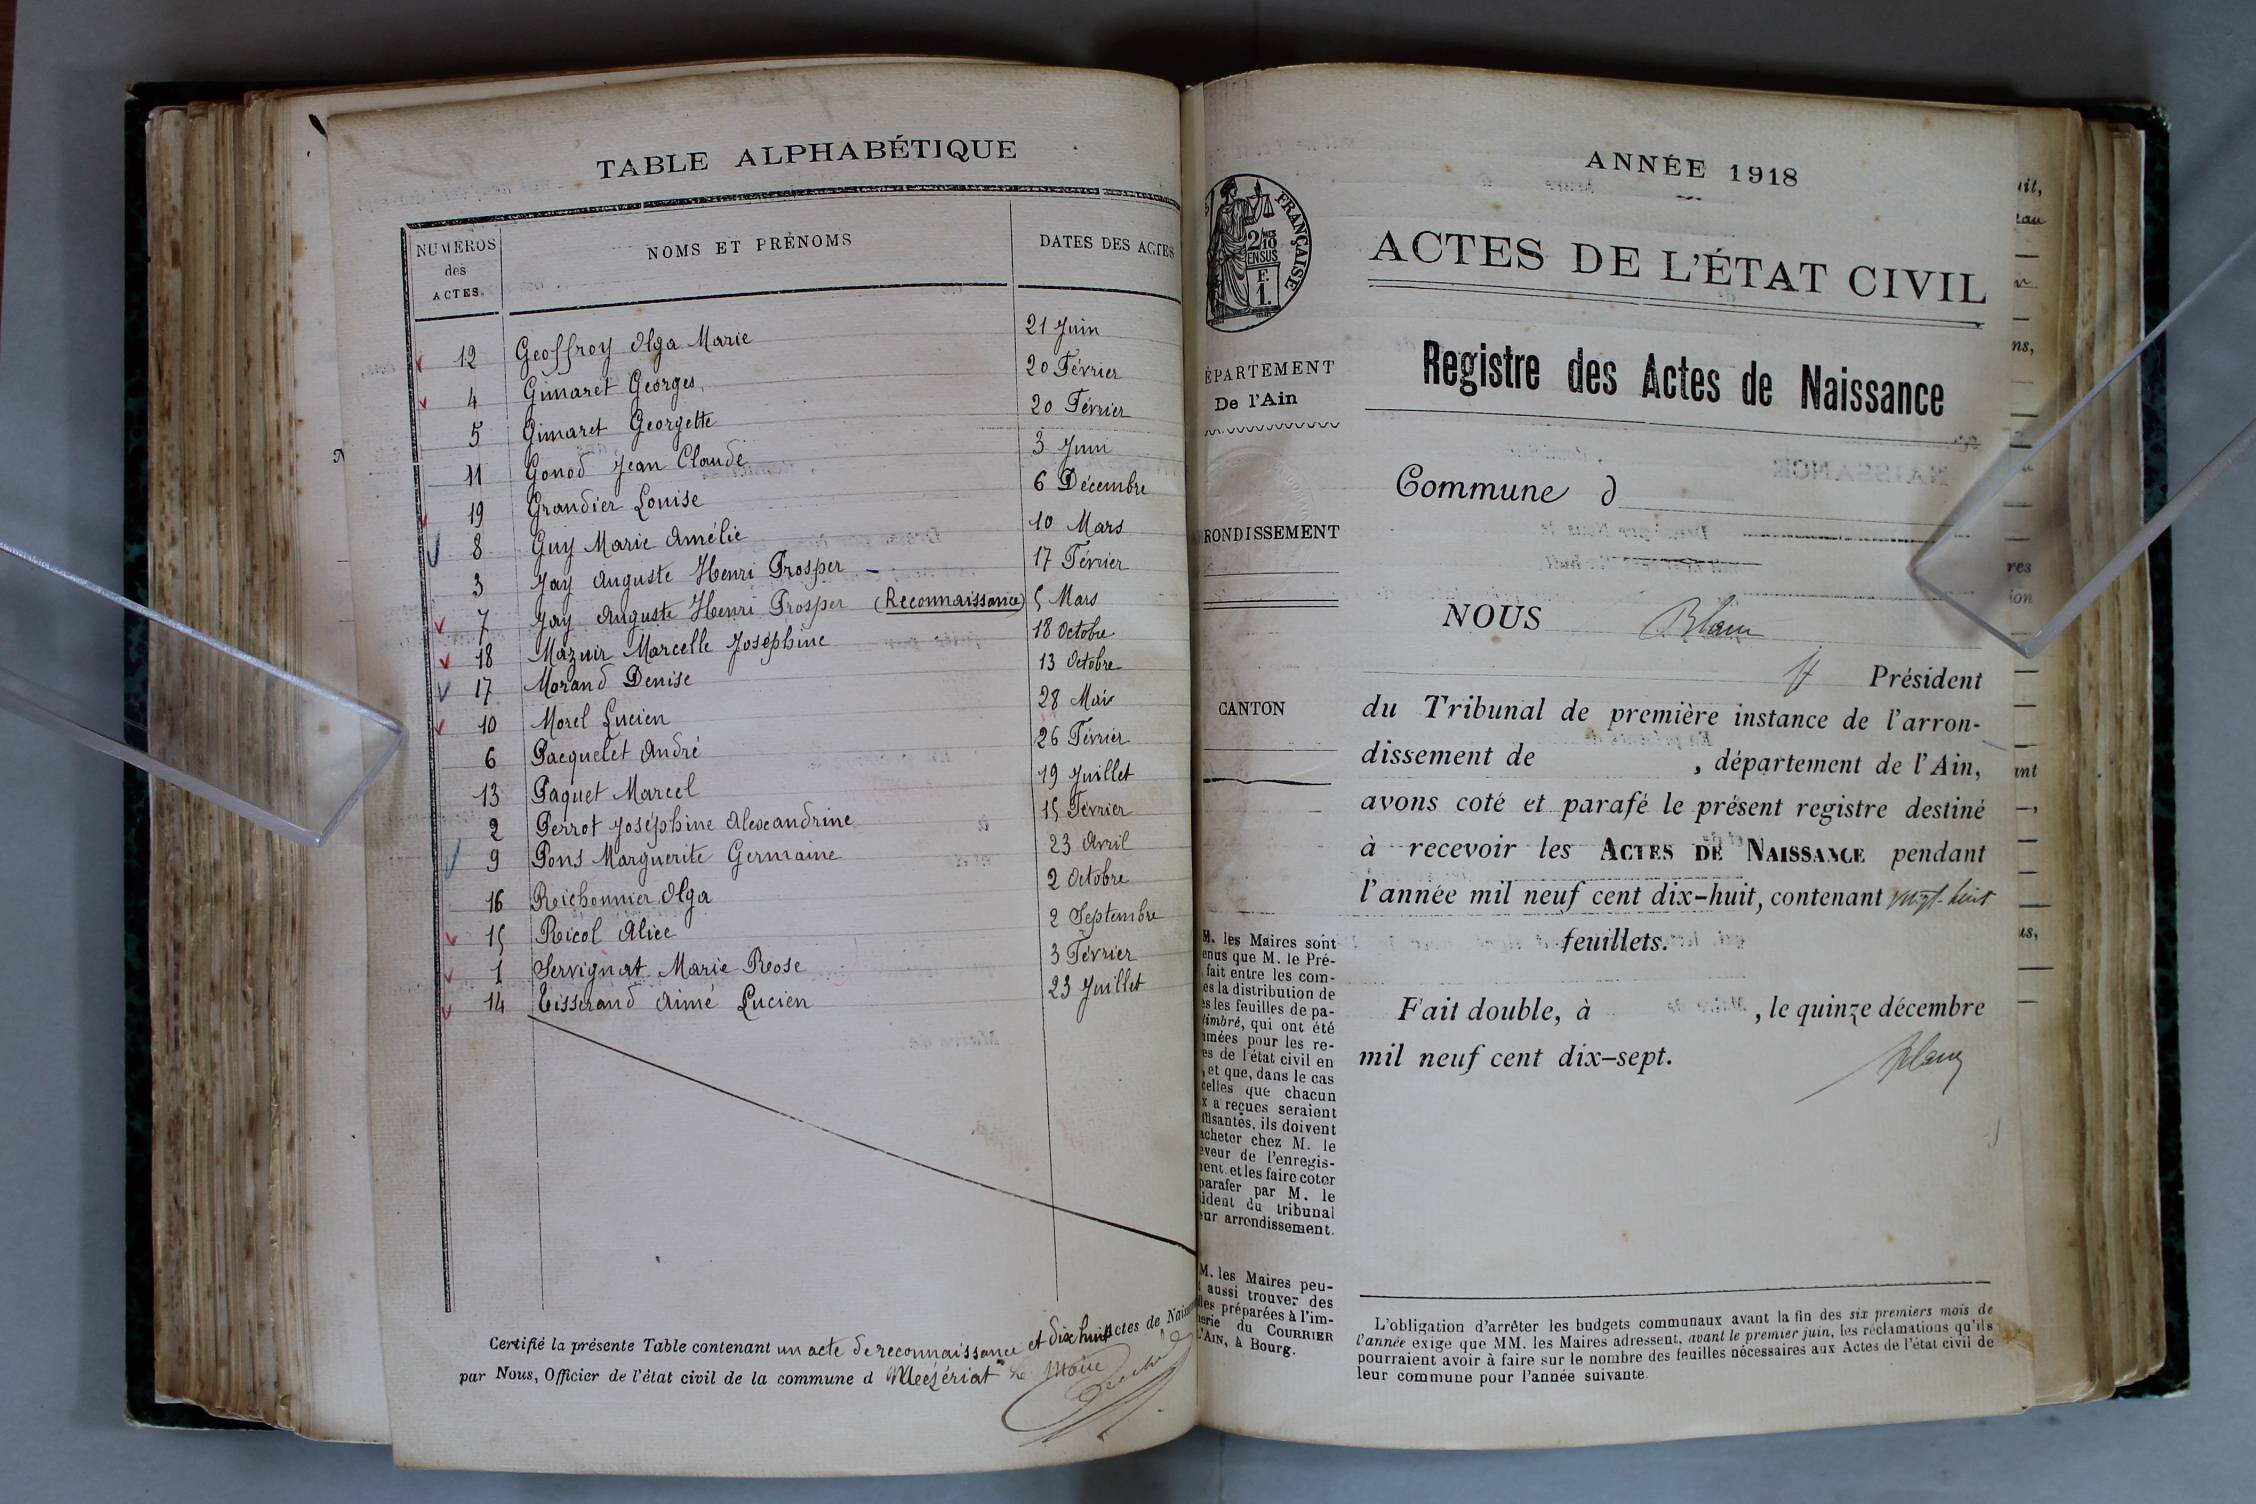 TABLE ALPHABÉTIQUE
NUMÉROS des ACTES. NOMS ET PRÉNOMS DATES DES ACTES
12 Geoffroy Olga Marie 21 Juin
4 Gimaret Georges 20 Février
5 Gimaret Georgette 20 Février
11 Gonod Jean Claude 3 Juin
19 Grandier Louise 6 Décembre
8 Guy Marie Amélie 10 Mars
3 Jay Auguste Henri Prosper 17 Février
7 Jay Auguste Henri Prosper (Reconnaissance) 5 Mars
18 Mazuir Marcelle Joséphine 18 Octobre
17 Morand Denise 13 Octobre
10 Morel Lucien 28 Mai
6 Pacquelet André 26 Février
13 Paquet Marcel 19 Juillet
2 Perrot Joséphine Alexandrine 15 Février
9 Pons Marguerite Germaine 23 Avril
16 Reichonnier Olga 2 Octobre
15 Ricol Alice 2 Septembre
1 Servignat Marie Rose 3 Février
14 Tisserand Aimé Lucien 23 Juillet
Certifié la présente Table contenant un acte de reconnaissance et dix huit actes de Nais
par Nous, Officier de l'état civil de la commune d Mézériat Le Maire
ANNÉE 1918
FRANÇAISE
2/10 MES
EN SUS
F.
1.
ACTES DE L'ÉTAT CIVIL
Registre des Actes de Naissance
ÉPARTEMENT
De l'Ain
Commune d
RONDISSEMENT
NOUS Blanc
Président
CANTON
du Tribunal de première instance de l'arron-
dissement de , département de l'Ain,
avons coté et parafé le présent registre destiné
à recevoir les ACTES DE NAISSANCE pendant
l'année mil neuf cent dix-huit, contenant vingt-huit
feuillets.
Fait double, à , le quinze décembre
mil neuf cent dix-sept.
Blanc
M. les Maires sont
enus que M. le Pré-
fait entre les com-
es la distribution de
es les feuilles de pa-
timbré, qui ont été
imées pour les re-
es de l'état civil en
, et que, dans le cas
celles que chacun
x a reçues seraient
ffisantes, ils doivent
acheter chez M. le
eveur de l'enregis-
ment et les faire coter
parafer par M. le
ident du tribunal
eur arrondissement.
M. les Maires peu-
aussi trouver des
lles préparées à l'im-
erie du COURRIER
L'AIN, à Bourg.
L'obligation d'arrêter les budgets communaux avant la fin des six premiers mois de
l'année exige que MM. les Maires adressent, avant le premier juin, les réclamations qu'ils
pourraient avoir à faire sur le nombre des feuilles nécessaires aux Actes de l'état civil de
leur commune pour l'année suivante.